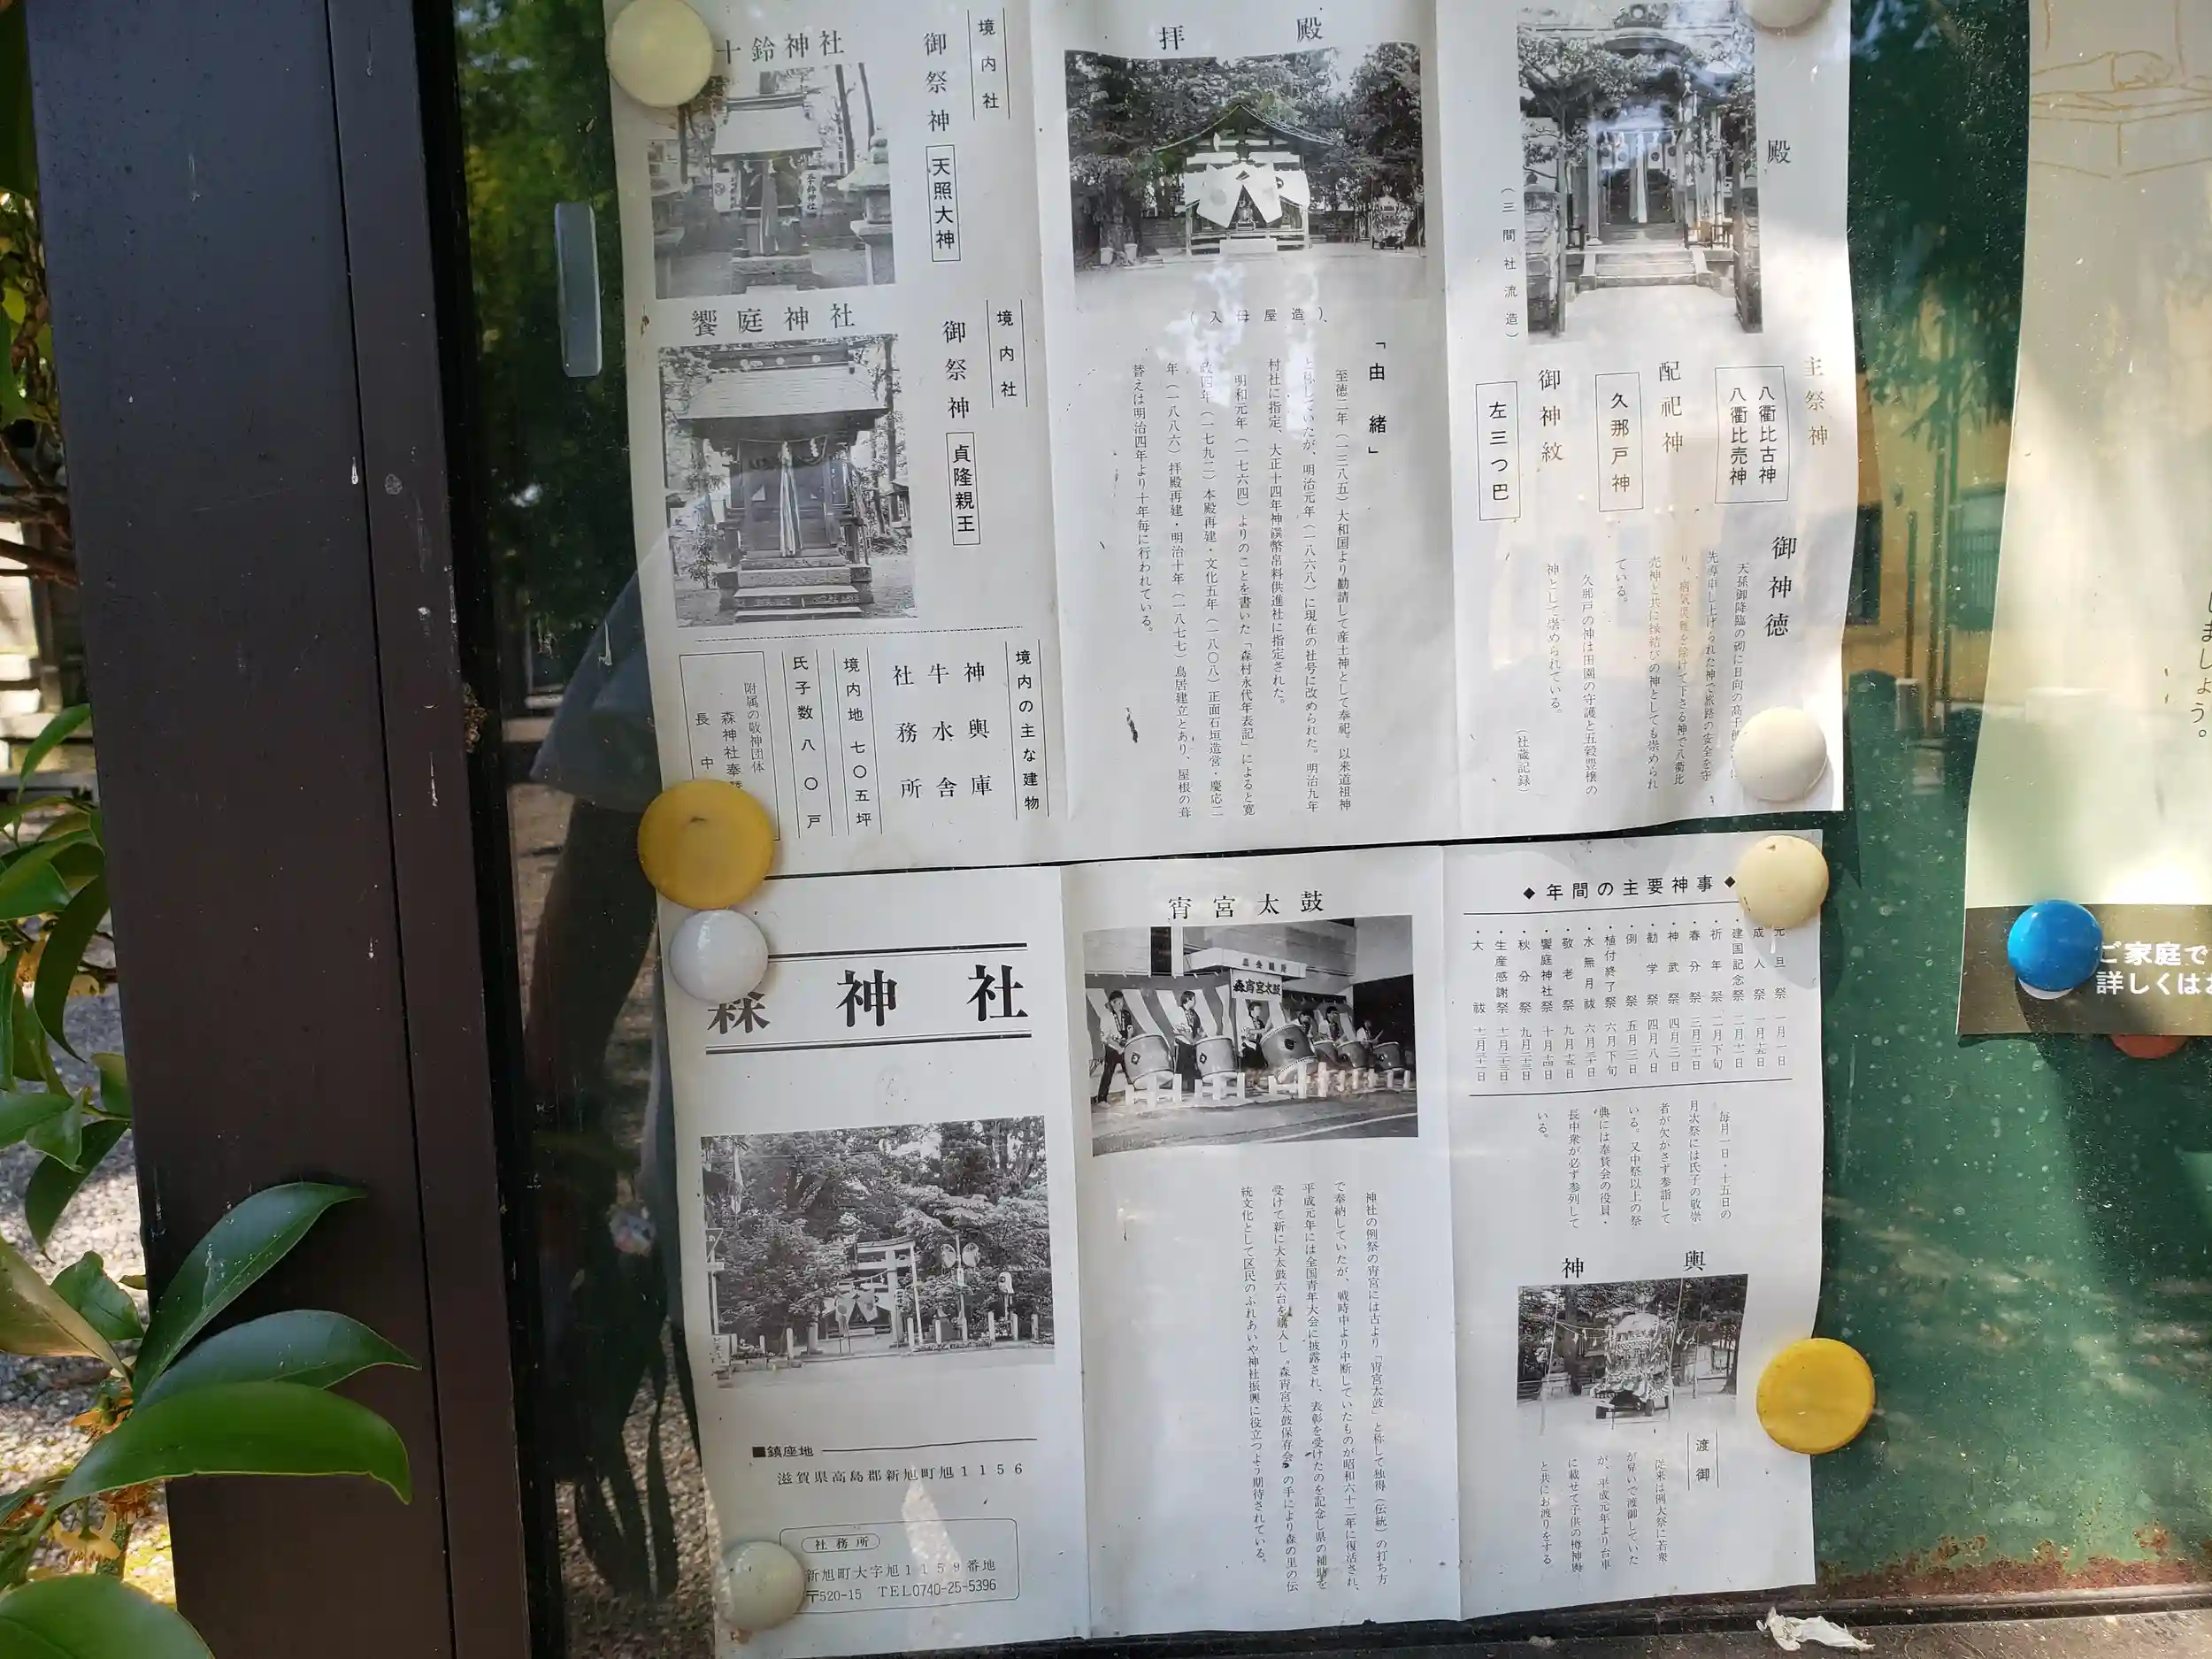 殿
(三間社流造)
主祭神
八衢比古神
八衢比売神
配祀神
久那戸神
御神紋
左三つ巴
御神徳
天孫御降臨の砌に日向の高千穂
先導申し上げられた神で旅路の安全を守
り、病気災難を除けて下さる神で八衢比
売神と共に縁結びの神としても崇められ
ている。
久那戸の神は田園の守護と五穀豊穣の
神として崇められている。
(社蔵記録)
拝殿
(入母屋造)
「由緒」
至徳二年(一三八五)大和国より勧請して産土神として奉祀。以来道祖神
と称していたが、明治元年(一八六八)に現在の社号に改められた。明治九年
村社に指定、大正十四年神饌幣帛料供進社に指定された。
明和元年(一七六四)よりのことを書いた「森村永代年表記」によると寛
政四年(一七九二)本殿再建・文化五年(一八〇八)正面石垣造営・慶応二
年(一八八六)拝殿再建・明治十年(一八七七)鳥居建立とあり、屋根の葺
替えは明治四年より十年毎に行われている。
境内社
十鈴神社
御祭神
天照大神
境内社
饗庭神社
御祭神
貞隆親王
境内の主な建物
神輿庫
牛水舎
社務所
境内地 七〇五坪
氏子数 八〇戸
附属の敬神団体
森神社奉
長中
◆年間の主要神事◆
元旦祭 一月一日
成人祭 一月十五日
・建国記念祭 二月十一日
・祈年祭 二月下旬
・春分祭 三月二十一日
・神武祭 四月三日
・勧学祭 四月八日
・例祭 五月三日
・植付終了祭 六月下旬
・水無月祓 六月三十日
・敬老祭 九月十五日
・饗庭神社祭 十月十四日
・秋分祭 九月二十三日
・生産感謝祭 十一月二十三日
・大祓 十二月三十一日
毎月一日・十五日の
月次祭には氏子の敬崇
者が欠かさず参詣して
いる。又中祭以上の祭
典には奉賛会の役員・
長中衆が必ず参列して
いる。
神輿
渡御
従来は例大祭に若衆
が舁いで渡御していた
が、平成元年より台車
に載せて子供の樽神輿
と共にお渡りをする
宵宮太鼓
森宵宮太鼓
神社の例祭の宵宮には古より「宵宮太鼓」と称して独得(伝統)の打ち方
で奉納していたが、戦時中より中断していたものが昭和六十二年に復活され、
平成元年には全国青年大会に披露され、表彰を受けたのを記念し県の補助を
受けて新に大太鼓六台を購入し"森宵宮太鼓保存会"の手により森の里の伝
統文化として区民のふれあいや神社振興に役立つよう期待されている。
森神社
■鎮座地
滋賀県高島郡新旭町旭1156
社務所
新旭町大字旭1159番地
〒520-15 TEL0740-25-5396
しましょう。
ご家庭で
詳しくはお